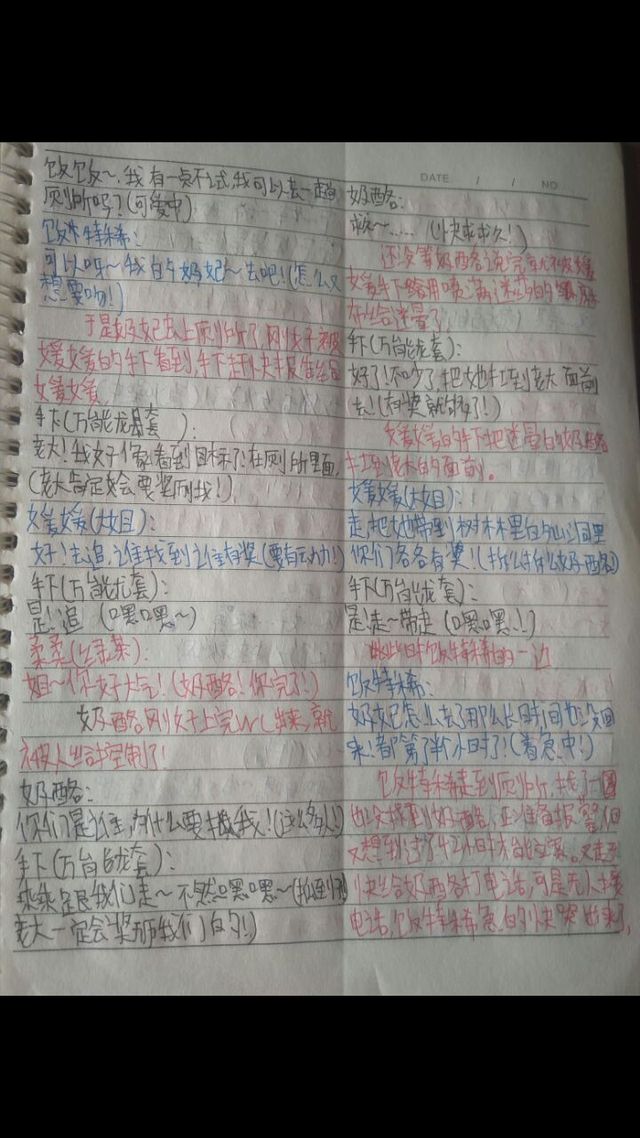 饭饭~,我有一点不舒服,我可以去一趟
厕所吗?(可爱中)
饭特稀:
可以呀~我的奶妃~去吧!(怎么又
想要吻!)
于是奶妃去上厕所了,刚好被
媛媛的手下看到,手下赶快报告给
媛媛
手下(万能龙套):
老大!我好像看到目标了!在厕所里面,
(老大肯定会要奖励我!)
媛媛(大姐):
好!去追,谁找到谁有奖(要有动力!)
手下(万能龙套):
是!追(嘿嘿~)
柔柔(绿茶):
姐~你好大气!(奶酪!你完了!)
奶酪刚好上完W(出来,就
被人给控制了!
奶酪:
你们是谁,为什么要抓我!(这么多人!)
手下(万能龙套):
乖乖跟我们走~不然嘿嘿~
老大一定会奖励我们的!)
DATE / / NO
奶酪:
救~……(快来救!)
还没等奶酪说完就被媛
媛手下给用喷满迷药的
布给迷晕了
手下(万能龙套):
好了!不吵了,把她扛到老大面前
去!(有奖就够了!)
媛媛的手下把迷晕的奶酪
扛到老大的面前。
媛媛(大姐):
走,把她带到树林里的山洞里
你们各各有奖!(
手下(万能龙套):
是!走~带走(嘿嘿!!)
此时饭特稀的一边
饭特稀:
奶妃怎么去了那么长时间也没回
来!都第了半小时了!(着急中!)
饭特稀走到厕所,找了一圈
也没找到奶酪,正准备报警但
又想到过了42小时才能立案。又赶
快给奶酪打电话,可是无人接
电话,饭特稀急的快哭出来了,